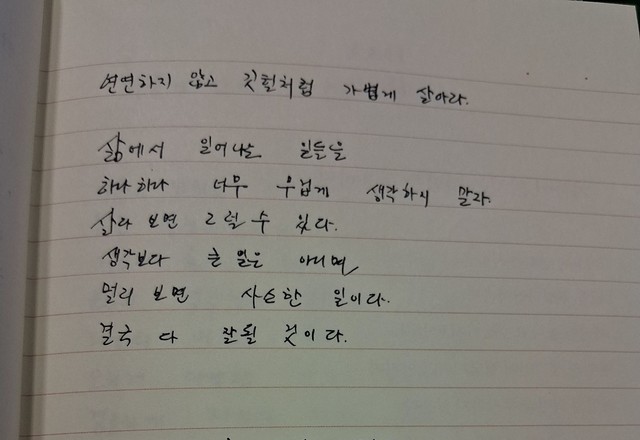 연연하지 않고 깃털처럼 가볍게 살아라.
삶에서 일어나는 일들을
하나하나 너무 무겁게 생각하지 말라.
살다 보면 그럴 수 있다.
생각보다 큰 일은 아니며
멀리 보면 사소한 일이다.
결국 다 잘될 것이다.